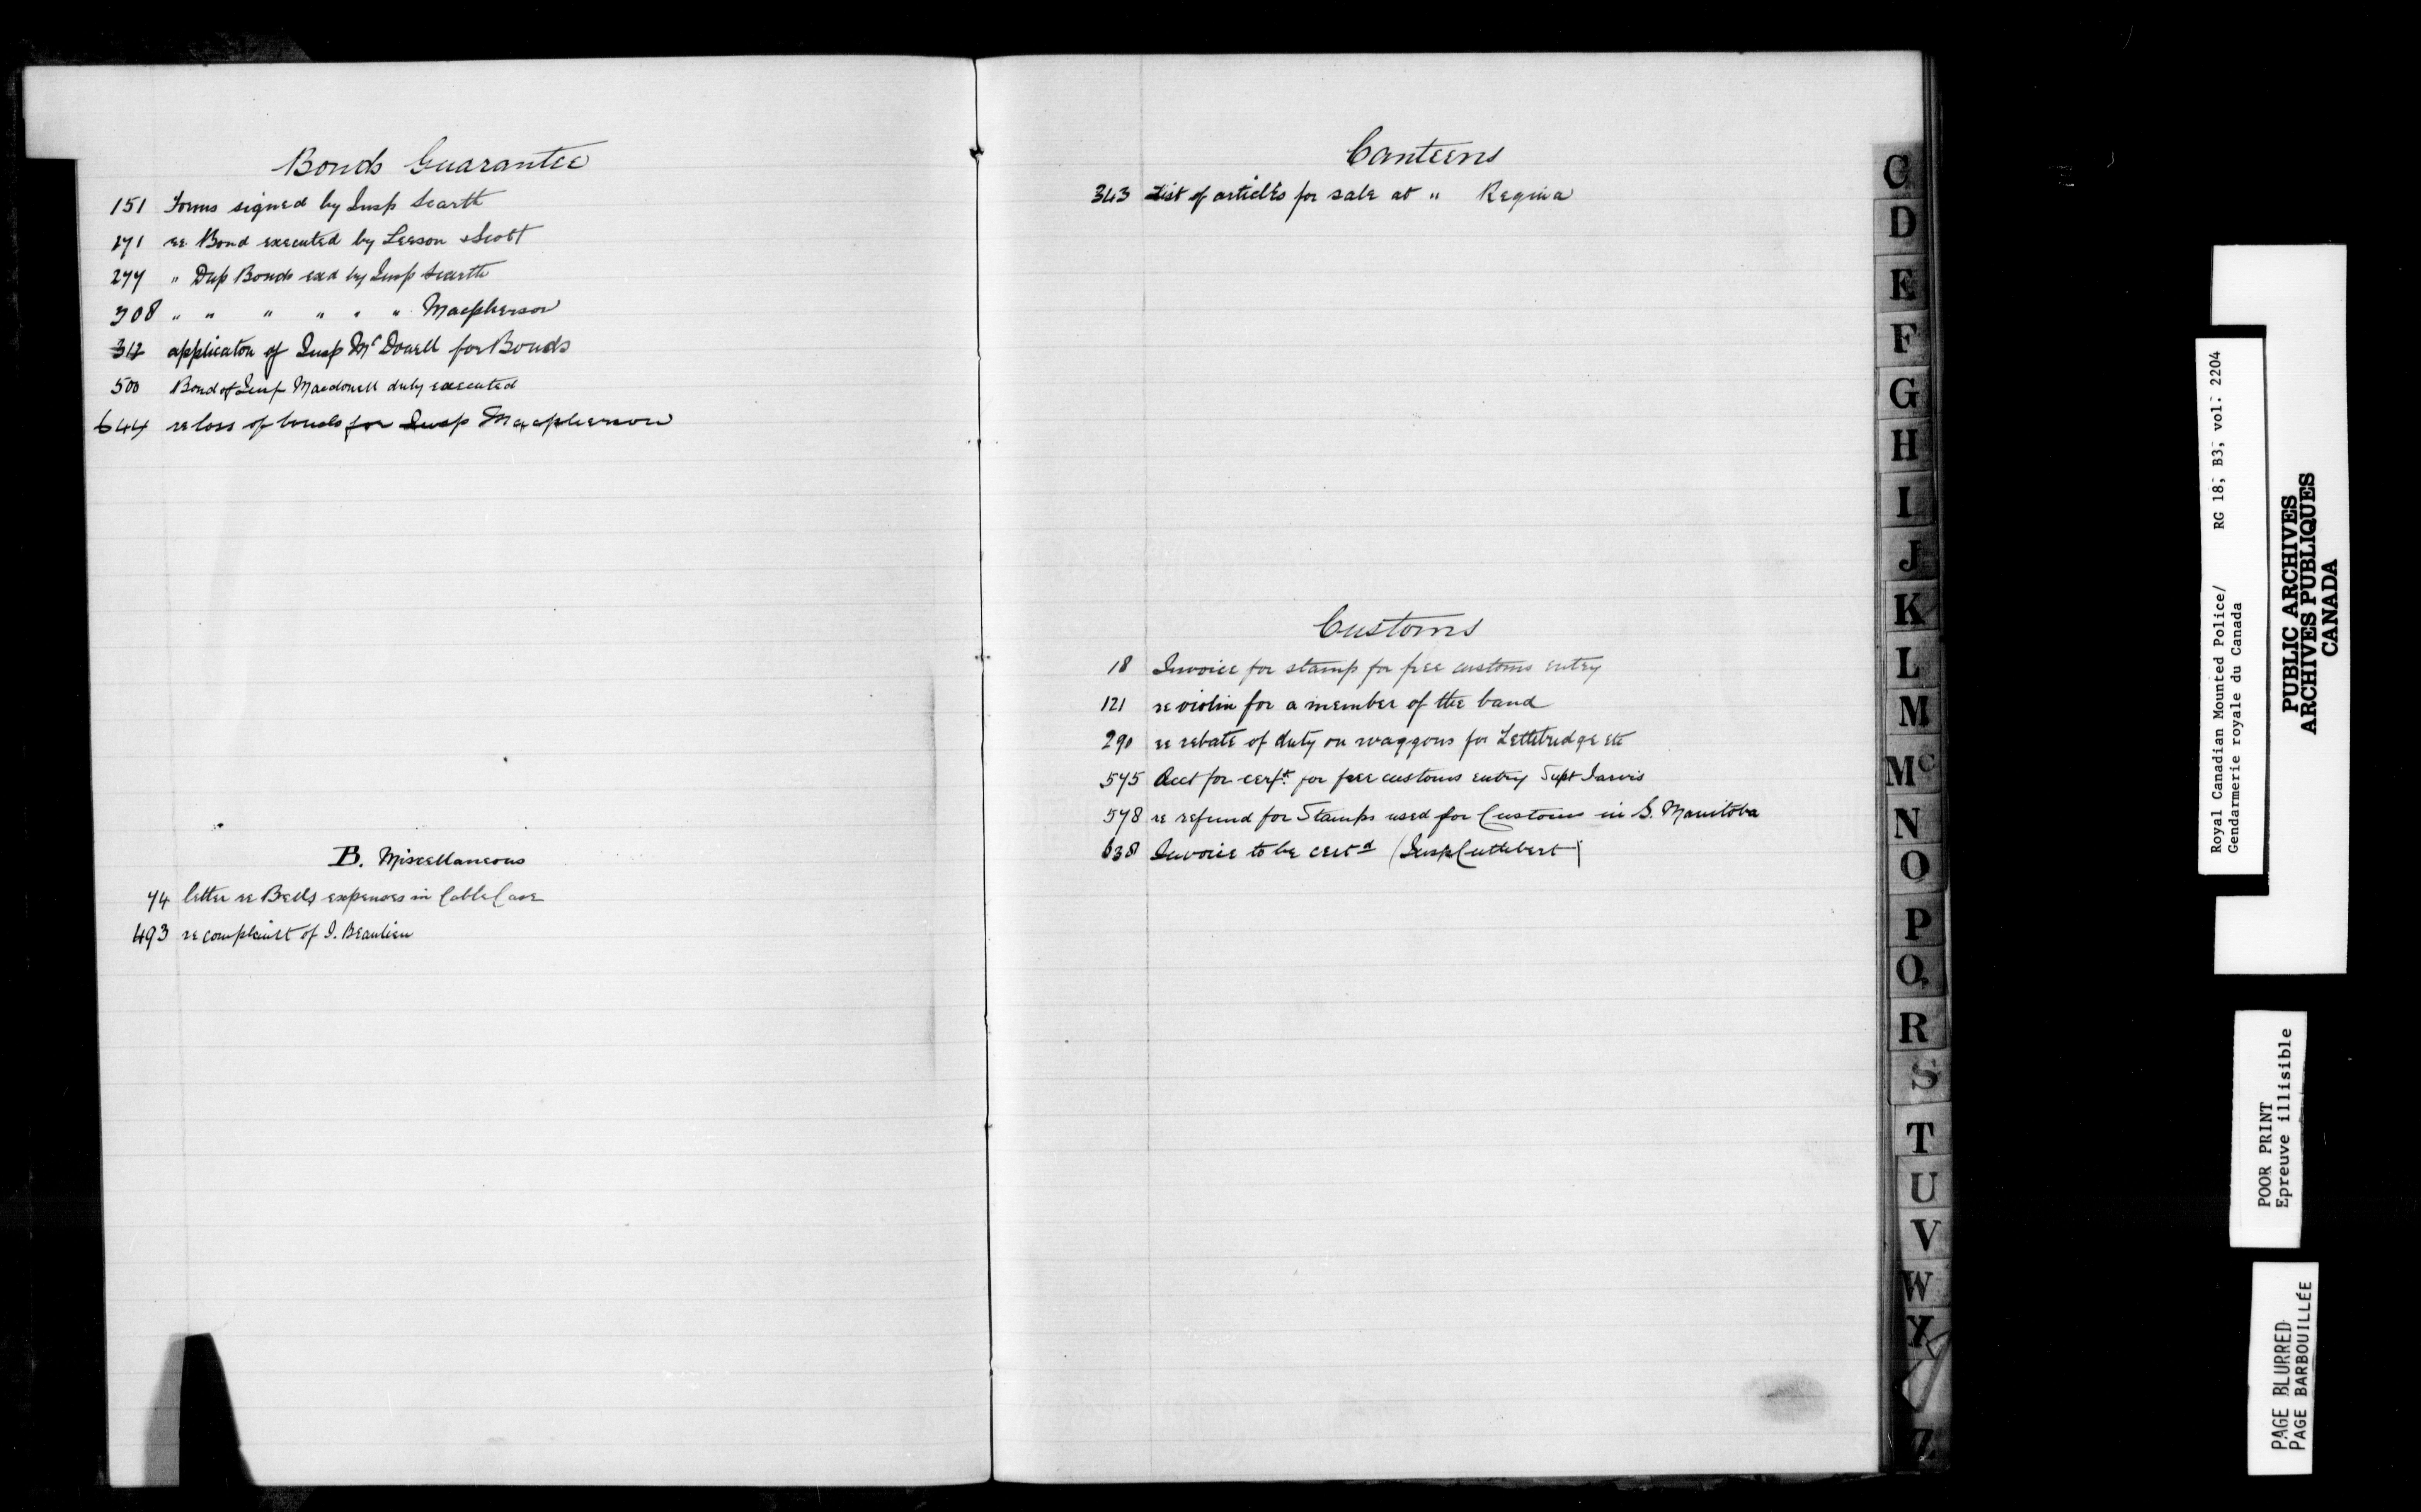 Bonds Guarantee
151 Forms signed by Insp Scarth
271 re Bond executed by Leeson & Scott
277 " Dup Bonds exd by Insp Scarth
308 " " " " " " Macpherson
312 applicaton of Insp Mc Donell for Bonds
500 Bond of Insp Macdonell duly executed
644 re loss of bonds for Insp Macpherson
B. Miscellaneous
74 letter re Bells expenses in Cable Case
493 re complaint of I. Beaulieu
Canteens
343 List of articles for sale at " Regina
Customs
18 Invoice for stamp for free customs entry
121 re violin for a member of the band
290 re rebate of duty on waggons for Lethbridge etc
575 Acct for certt. for free customs entry Supt Jarvis
578 re refund for Stamps used for Customs in S. Manitoba
638 Invoice to be certd (Insp Cuthbert)
C
D
E
F
G
H
I
J
K
L
M
Mc
N
O
P
Q
R
S
T
U
V
W
X
Z
Royal Canadian Mounted Police/ RG 18, B3, vol. 2204
Gendarmerie royale du Canada
PUBLIC ARCHIVES
ARCHIVES PUBLIQUES
CANADA
POOR PRINT
Epreuve illisible
PAGE BLURRED
PAGE BARBOUILLÉE